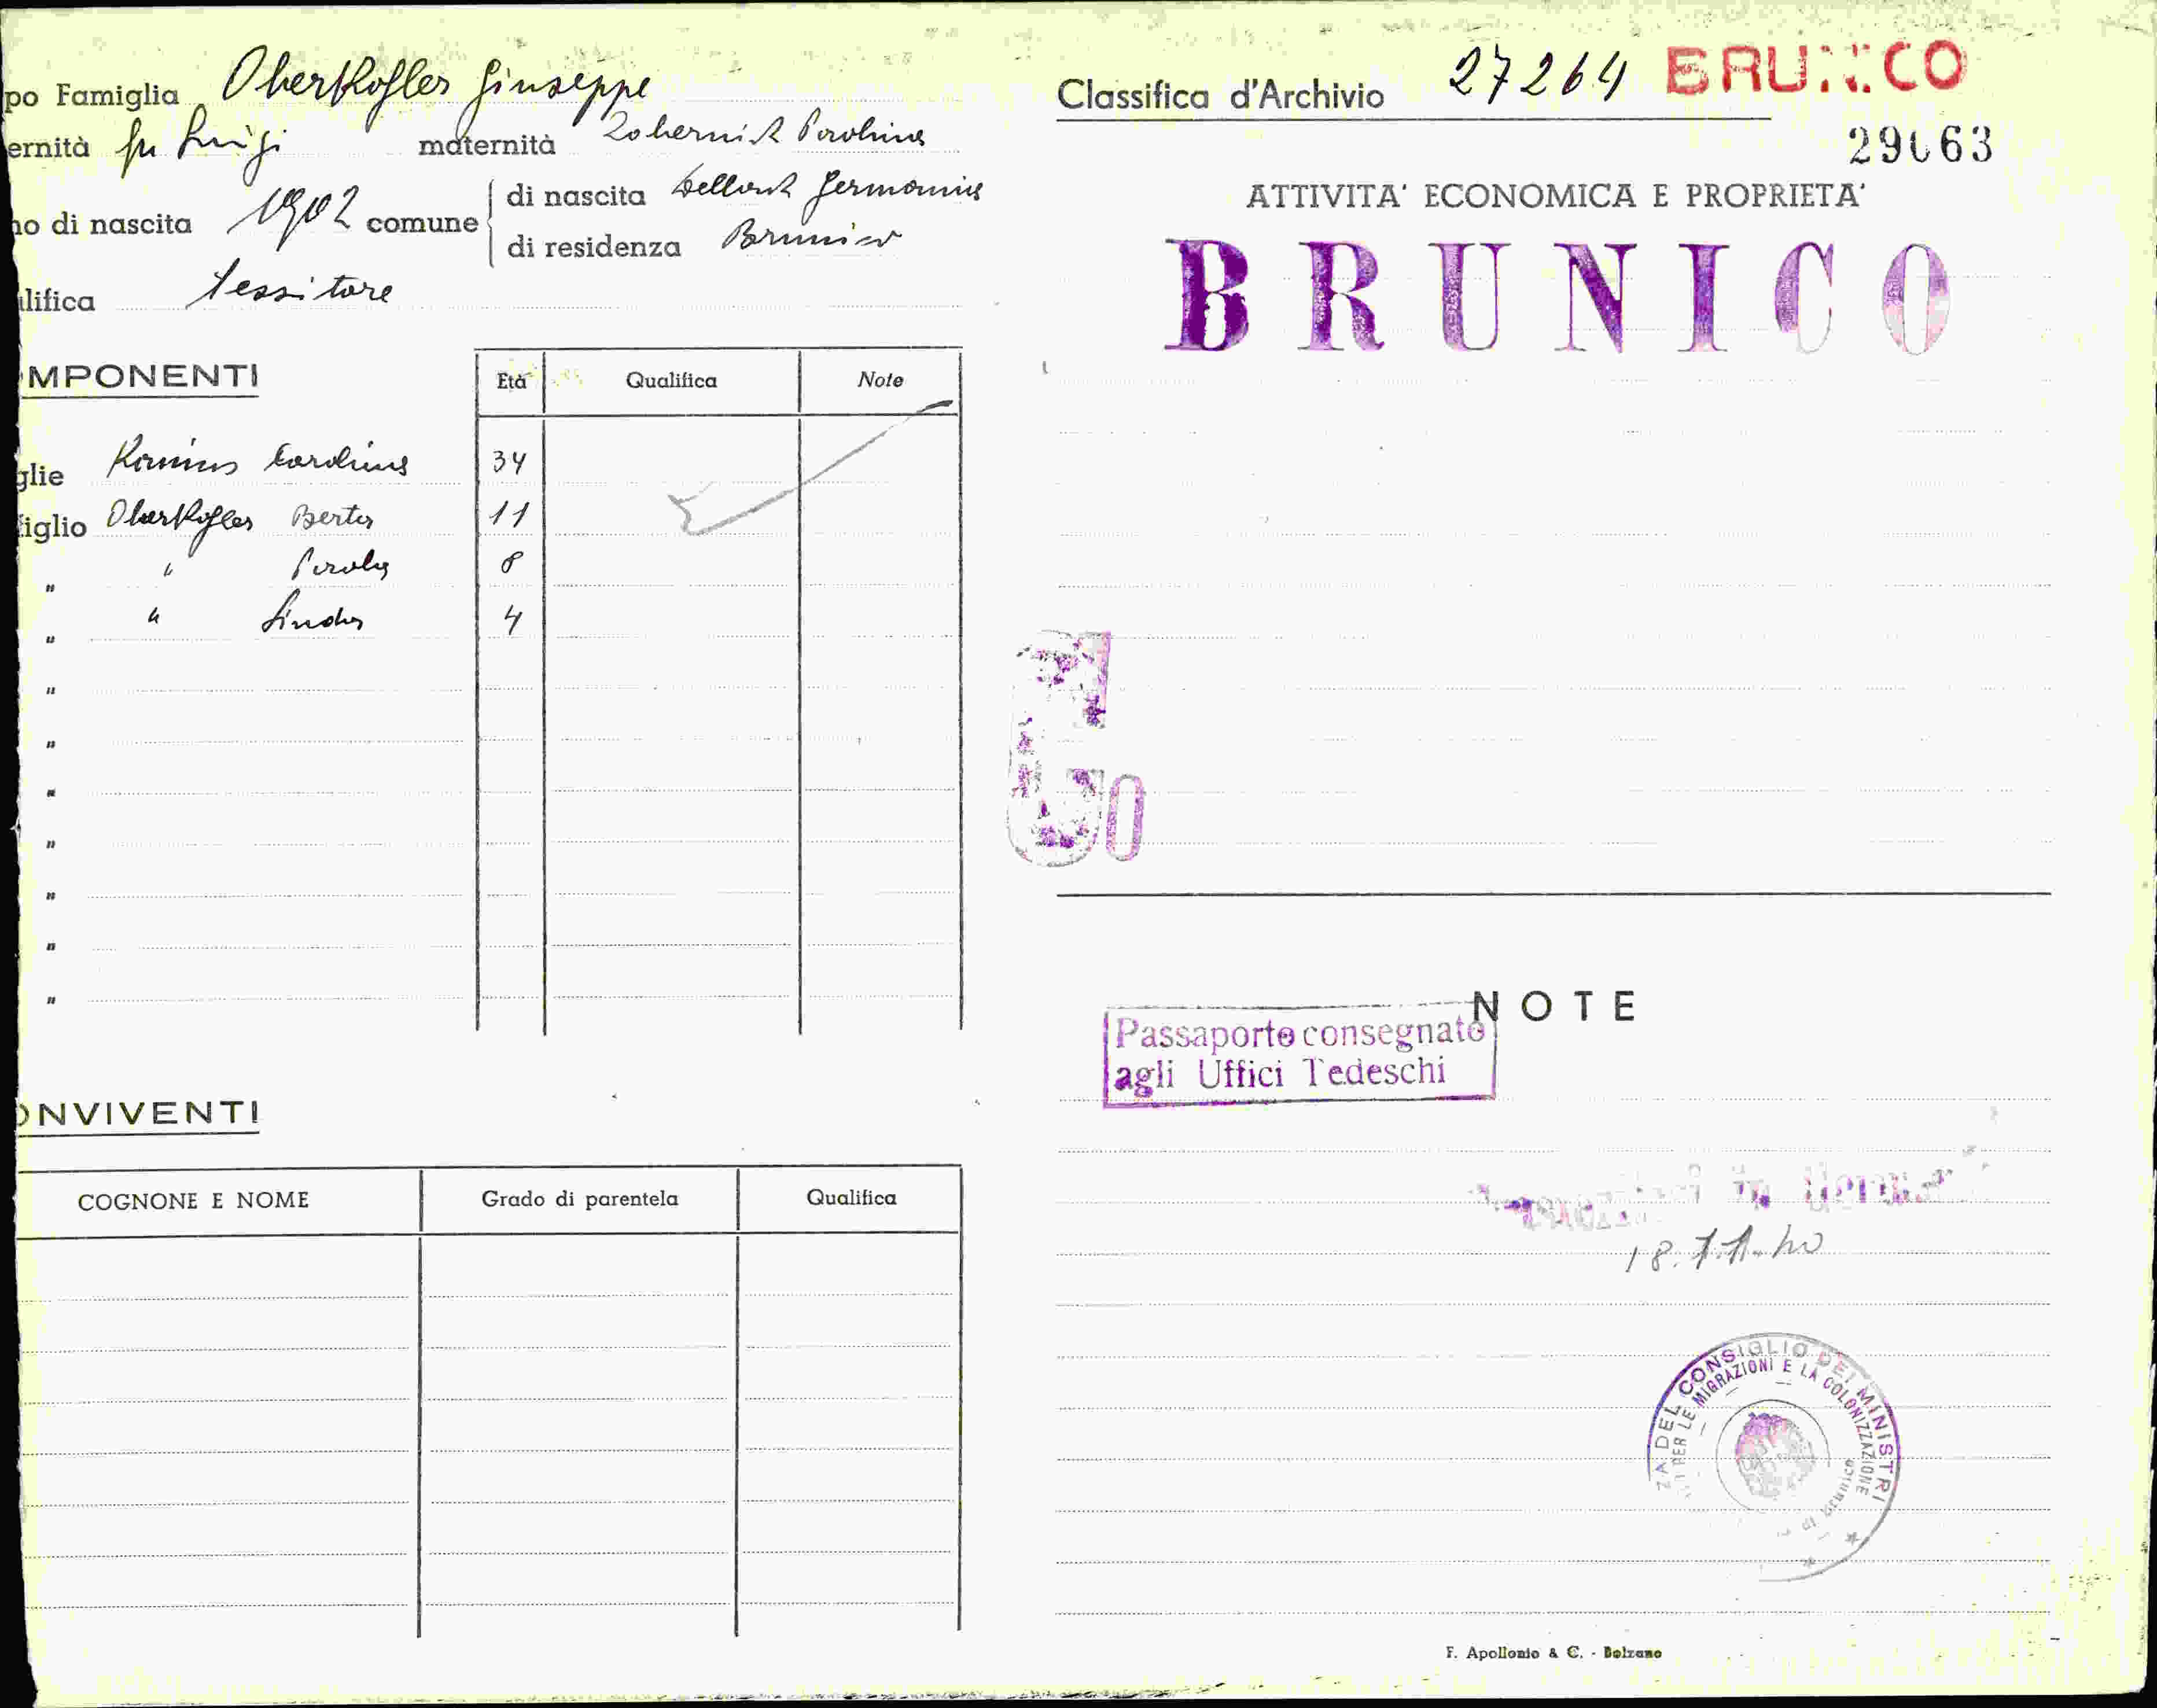 po Famiglia Oberkofler Giuseppe
ernità fu Luigi maternità
no di nascita 1902 comune di nascita
di residenza Brunico
lifica Tessitore
MPONENTI
Età Qualifica Note
glie 34
iglio Oberkofler Berta 11
" " 8
" " 4
"
"
"
"
"
"
"
ONVIVENTI
COGNONE E NOME Grado di parentela Qualifica
Classifica d'Archivio 27264 BRUNICO
29063
ATTIVITA' ECONOMICA E PROPRIETA'
BRUNICO
NOTE
Passaporto consegnato
agli Uffici Tedeschi
18.11.40
ZA DEL CONSIGLIO DEI MINISTRI
PER LE MIGRAZIONI E LA COLONIZZAZIONE
di Brunico
F. Apollonio & C. - Bolzano